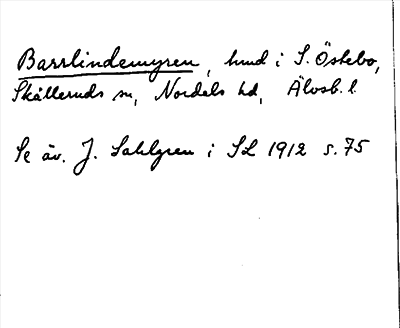 Barrlindemyren, hmd i S. Östebo,
Skålleruds sn, Nordals hd, Älvsb. l.
Se äv. J. Sahlgren i SL 1912 s. 75